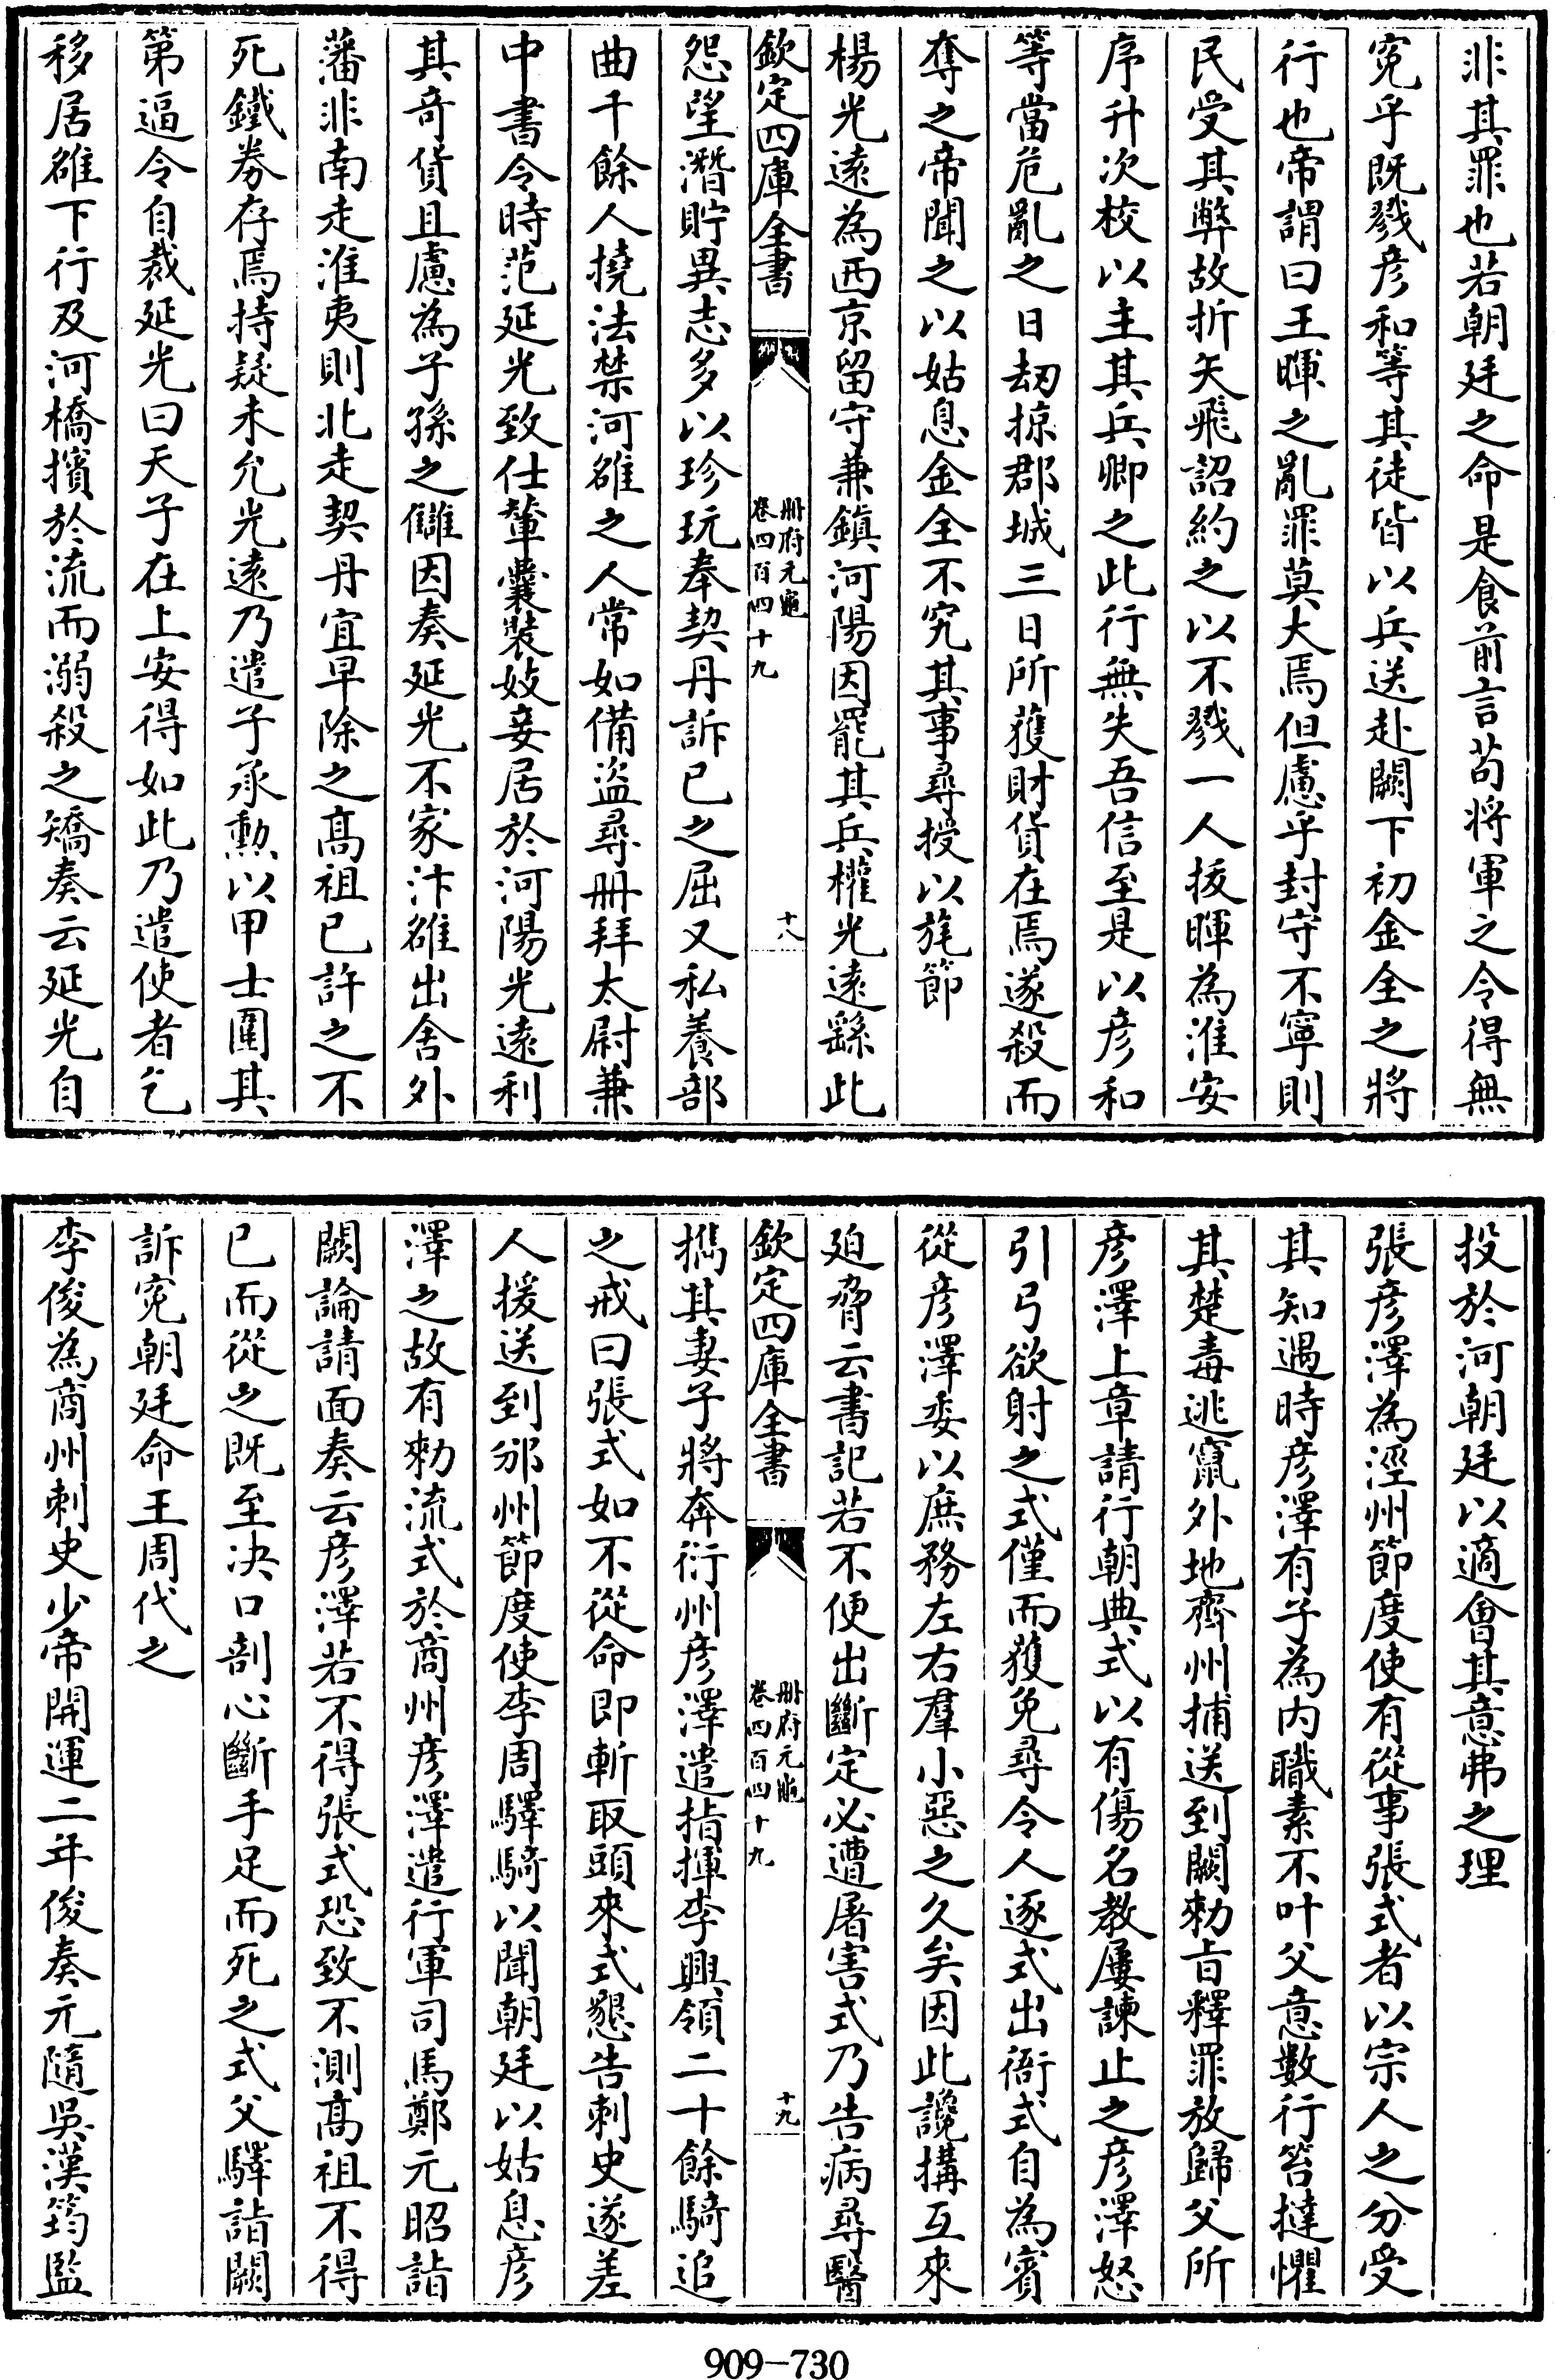 非其罪也若朝廷之命是食前言苟將軍之令得無
寃乎既戮彦和等其徒皆以兵送赴闕下初金全之將
行也帝謂曰王暉之亂罪莫大焉但慮乎封守不寧則
民受其弊故折矢飛詔約之以不戮一人拔暉為淮安
序升次校以主其兵卿之此行無失吾信至是以彦和
等當危亂之日刼掠郡城三日所獲財貨在焉遂殺而
奪之帝聞之以姑息金全不究其事尋授以旄節
楊光遠為西京留守兼鎮河陽因罷其兵權光遠繇此
欽定四庫全書
冊府元龜
卷四百四十九
十八
怨望潛貯異志多以珍玩奉契丹訴已之屈又私養部
曲千餘人撓法禁河雒之人常如備盜尋冊拜太尉兼
中書令時范延光致仕輦囊裝妓妾居於河陽光遠利
其奇貨且慮為子孫之讎因奏延光不家汴雒出舍外
藩非南走淮夷則北走契丹宜早除之髙祖已許之不
死鐵券存焉持疑未允光遠乃遣子承勲以甲士圍其
第逼令自裁延光曰天子在上安得如此乃遣使者乞
移居雒下行及河橋擯於流而溺殺之矯奏云延光自
投於河朝廷以適會其意弗之理
張彦澤為涇州節度使有從事張式者以宗人之分受
其知遇時彦澤有子為内職素不叶父意數行笞撻懼
其楚毒逃竄外地齊州捕送到闕勅旨釋罪放歸父所
彦澤上章請行朝典式以有傷名教屢諫止之彦澤怒
引弓欲射之式僅而獲免尋令人逐式出衙式自為賓
從彦澤委以庶務左右羣小惡之久矣因此讒搆互來
廹脅云書記若不便出斷定必遭屠害式乃告病尋醫
欽定四庫全書
冊府元龜
卷四百四十九
十九
㩗其妻子將奔衍州彦澤遣指揮李興領二十餘騎追
之戒曰張式如不從命即斬取頭來式懇告刺史遂差
人援送到邠州節度使李周驛騎以聞朝廷以姑息彦
澤之故有勅流式於商州彦澤遣行軍司馬鄭元昭詣
闕論請面奏云彦澤若不得張式恐致不測髙祖不得
已而從之既至决口剖心斷手足而死之式父驛詣闕
訴寃朝廷命王周代之
李俊為商州刺史少帝開運二年俊奏元隨吳漢筠監
909-730